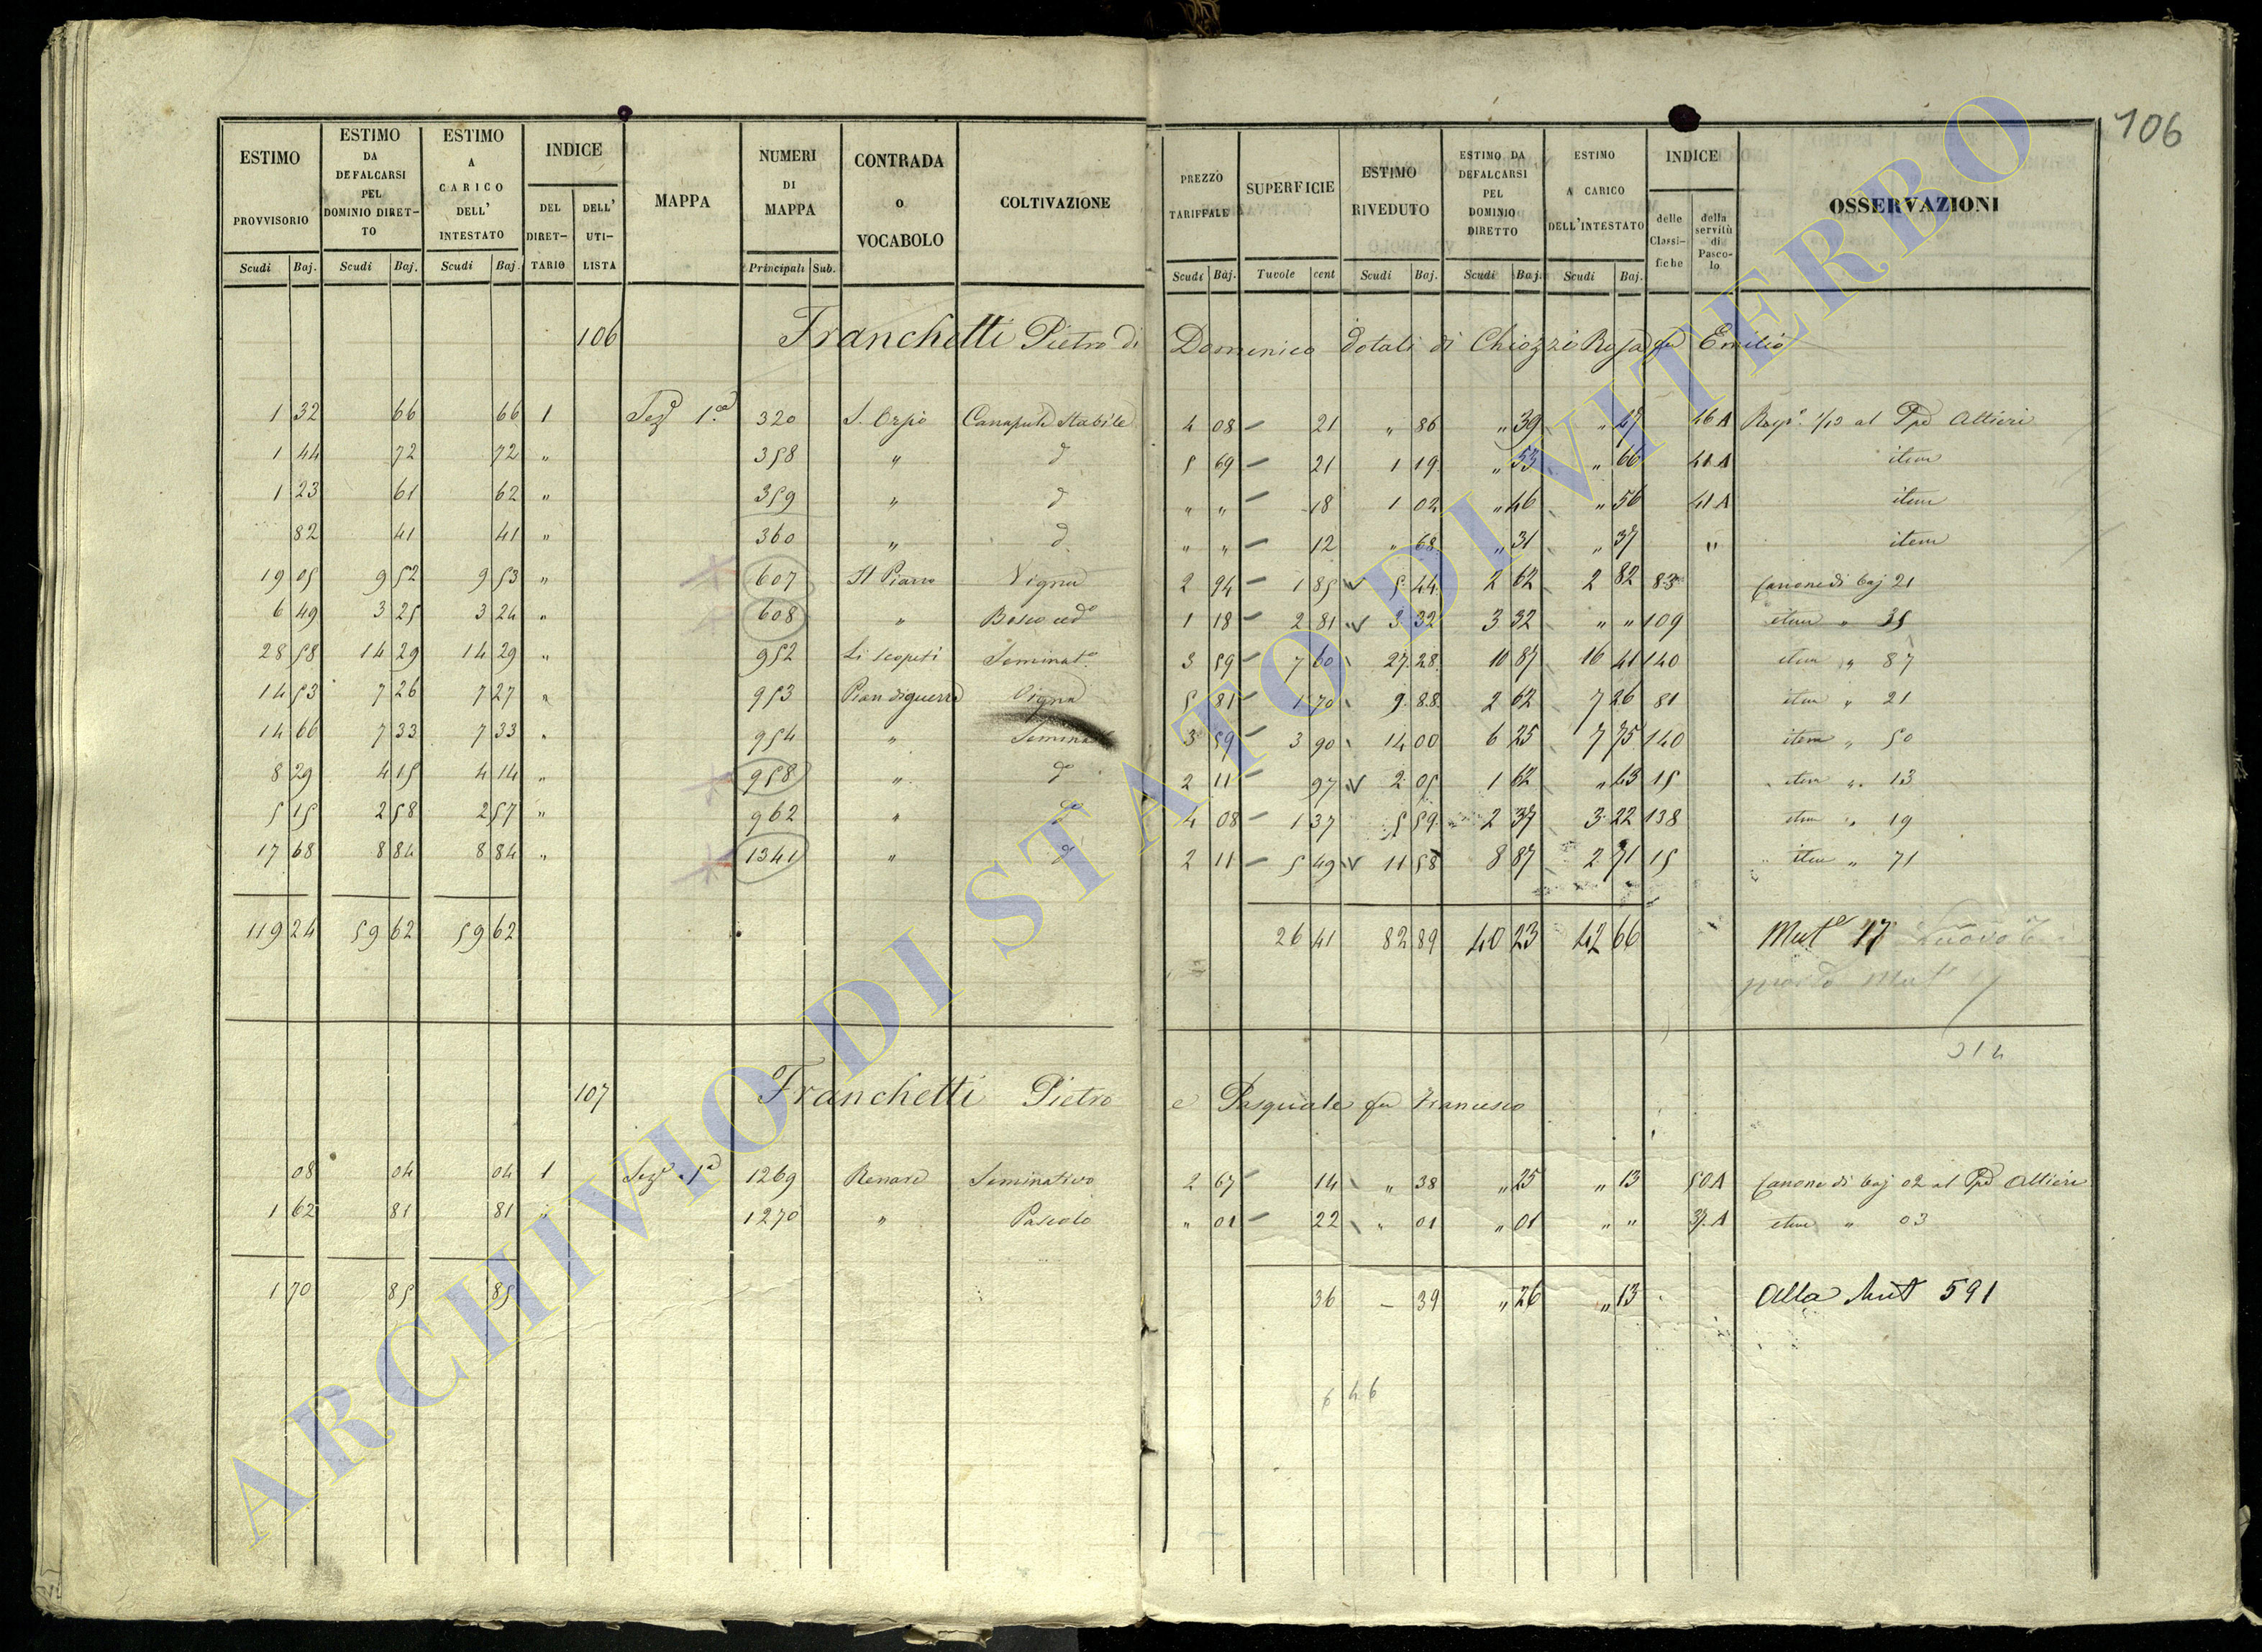 106
ESTIMO PROVVISORIO Scudi Baj.
ESTIMO DA DEFALCARSI PEL DOMINIO DIRETTO Scudi Baj.
ESTIMO A CARICO DELL' INTESTATO Scudi Baj.
INDICE DEL DIRETTARIO DELL' UTILISTA
MAPPA
NUMERI DI MAPPA Principali Sub.
CONTRADA o VOCABOLO
COLTIVAZIONE
PREZZO TARIFFALE Scudi Baj.
SUPERFICIE Tavole cent
ESTIMO RIVEDUTO Scudi Baj.
ESTIMO DA DEFALCARSI PEL DOMINIO DIRETTO Scudi Baj.
ESTIMO A CARICO DELL'INTESTATO Scudi Baj.
INDICE delle Classifiche della servitù di Pascolo
OSSERVAZIONI
106 Franchetti Pietro di Domenico dotali di Chiozzi Rosa fu Emilio
1 32 66 66 1 Sezᵉ 1ª 320 S. Orsio Canapule Stabile 4 08 – 21 " 86 " 39 " 47 46 A Rispᵃ 1/12 al Ppe Altieri
1 44 72 72 " 358 " dᵒ 5 69 – 21 1 19 " 53 " 66 41 A item
1 23 61 62 " 359 " dᵒ " " – 18 1 02 " 46 " 56 41 A item
82 41 41 " 360 " dᵒ " " – 12 " 68 " 31 " 37 " item
19 05 9 52 9 53 " 607 Il Piano Vigna 2 94 – 1 85 5 44 2 62 2 82 83 Canone di baj 21
6 49 3 25 3 24 " 608 " Bosco cedᵒ 1 18 – 2 81 3 32 3 32 " " 109 item " 35
28 58 14 29 14 29 " 952 Li Scopeti Seminatᵒ 3 59 – 7 60 27 28 10 87 16 41 140 item " 87
14 53 7 26 7 27 " 953 Pian di guerra Vigna 5 81 – 1 70 9 88 2 62 7 26 81 item " 21
14 66 7 33 7 33 " 954 " Seminatᵒ 3 59 – 3 90 14 00 6 25 7 75 140 item " 50
8 29 4 15 4 14 " 958 " dᵒ 2 11 – 97 2 05 1 62 " 43 15 item " 13
5 15 2 58 2 57 " 962 " dᵒ 4 08 – 1 37 5 59 2 37 3 22 138 item " 19
17 68 8 84 8 84 " 1341 " dᵒ 2 11 – 5 49 11 58 8 87 2 71 15 item " 71
119 24 59 62 59 62 26 41 82 89 40 23 42 66 Mutᵉ 17
Mutᵉ
107 Franchetti Pietro e Pasquale fu Francesco
08 04 04 1 Sezᵉ 1ª 1269 Renare Seminativo 2 67 – 14 " 38 " 25 " 13 50 A Canone di baj 02 al Ppe Altieri
1 62 81 81 " 1270 " Pascolo " 01 – 22 " 01 " 01 " " 37 A item " 03
1 70 85 85 36 – 39 " 26 " 13 Alla Mut 591
6 46
ARCHIVIO DI STATO DI VITERBO